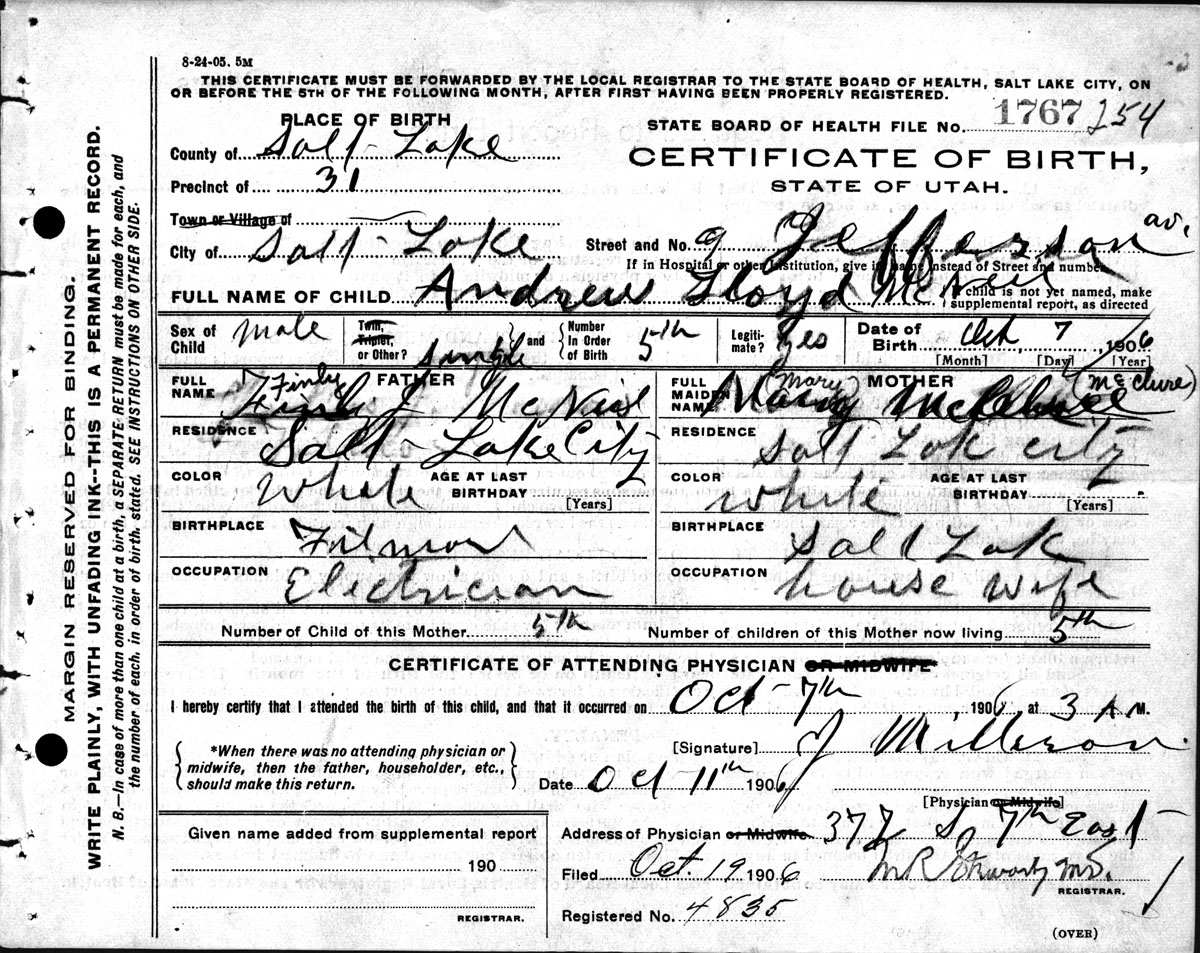 8-24-05. 5M
THIS CERTIFICATE MUST BE FORWARDED BY THE LOCAL REGISTRAR TO THE STATE BOARD OF HEALTH, SALT LAKE CITY, ON
OR BEFORE THE 5TH OF THE FOLLOWING MONTH, AFTER FIRST HAVING BEEN PROPERLY REGISTERED.
PLACE OF BIRTH
STATE BOARD OF HEALTH FILE No. 1767 254
County of Salt Lake
CERTIFICATE OF BIRTH,
Precinct of 31
STATE OF UTAH.
Town or Village of
City of Salt Lake
Street and No. 9 Jefferson av.
If in Hospital or other Institution, give its name instead of Street and number
FULL NAME OF CHILD Andrew Floyd McNeil
If child is not yet named, make
supplemental report, as directed
Sex of Child male
Twin, Triplet, or Other? single and Number In Order of Birth 5th
Legitimate? yes
Date of Birth Oct 7 1906
[Month] [Day] [Year]
FATHER
FULL NAME Finly J McNeil
Finly
RESIDENCE Salt Lake City
COLOR White AGE AT LAST BIRTHDAY [Years]
BIRTHPLACE Filmore
OCCUPATION Electrician
MOTHER
FULL MAIDEN NAME Mary McClure
(Mary) (McClure)
RESIDENCE Salt Lak City
COLOR White AGE AT LAST BIRTHDAY [Years]
BIRTHPLACE Salt Lak
OCCUPATION house wife
Number of Child of this Mother 5th
Number of children of this Mother now living 5th
CERTIFICATE OF ATTENDING PHYSICIAN OR MIDWIFE
I hereby certify that I attended the birth of this child, and that it occurred on Oct 7th, 1906, at 3 A M.
*When there was no attending physician or
midwife, then the father, householder, etc.,
should make this return.
[Signature] J Millerson
Date Oct 11th 1906
[Physician or Midwife]
Given name added from supplemental report
190
REGISTRAR.
Address of Physician or Midwife 377 So 7th East
Filed Oct. 19 1906
M.D.
REGISTRAR.
Registered No. 4835
(OVER)
MARGIN RESERVED FOR BINDING.
WRITE PLAINLY, WITH UNFADING INK--THIS IS A PERMANENT RECORD.
N. B.--In case of more than one child at a birth, a SEPARATE RETURN must be made for each, and
the number of each, in order of birth, stated. SEE INSTRUCTIONS ON OTHER SIDE.